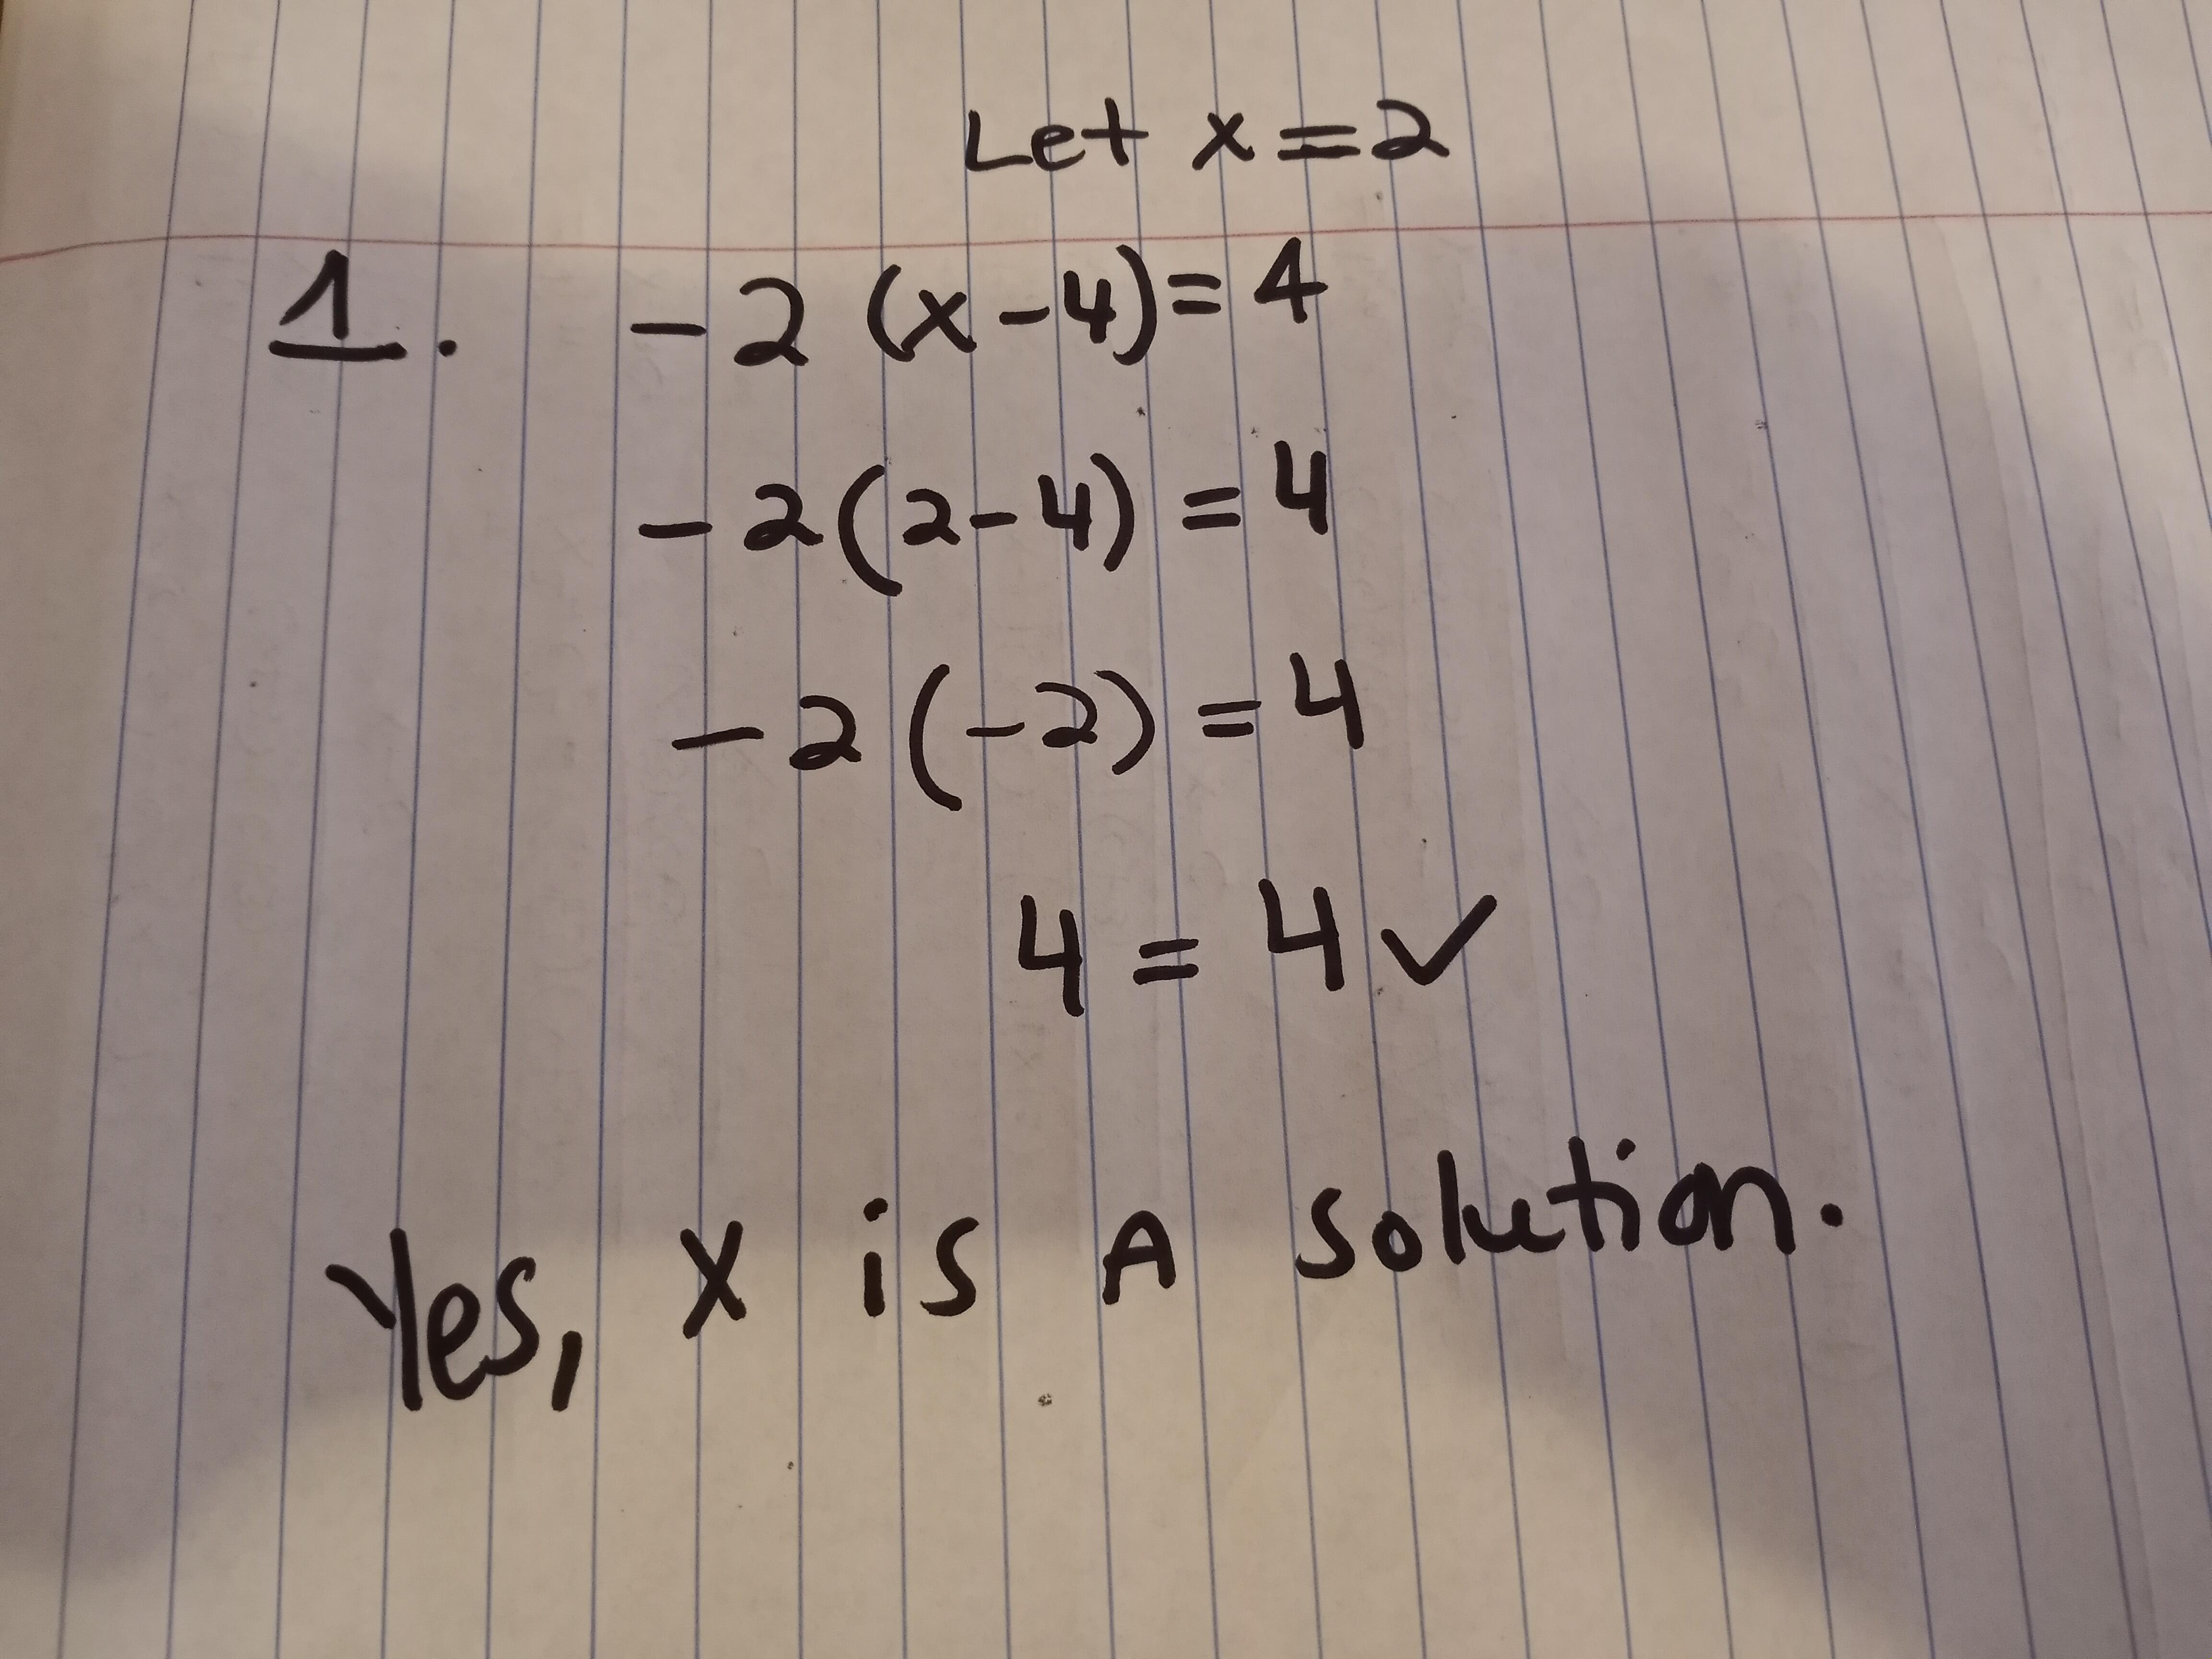 Let x = 2
1. -2 (x - 4) = 4
-2 (2 - 4) = 4
-2 (-2) = 4
4 = 4 ✓
Yes, x is A solution.